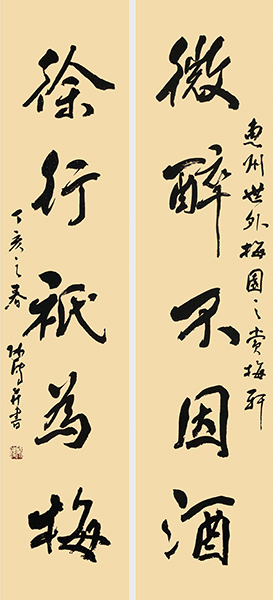 惠州世外梅園之賞梅軒
微醉不因酒
徐行祇為梅
丁亥之春
并書